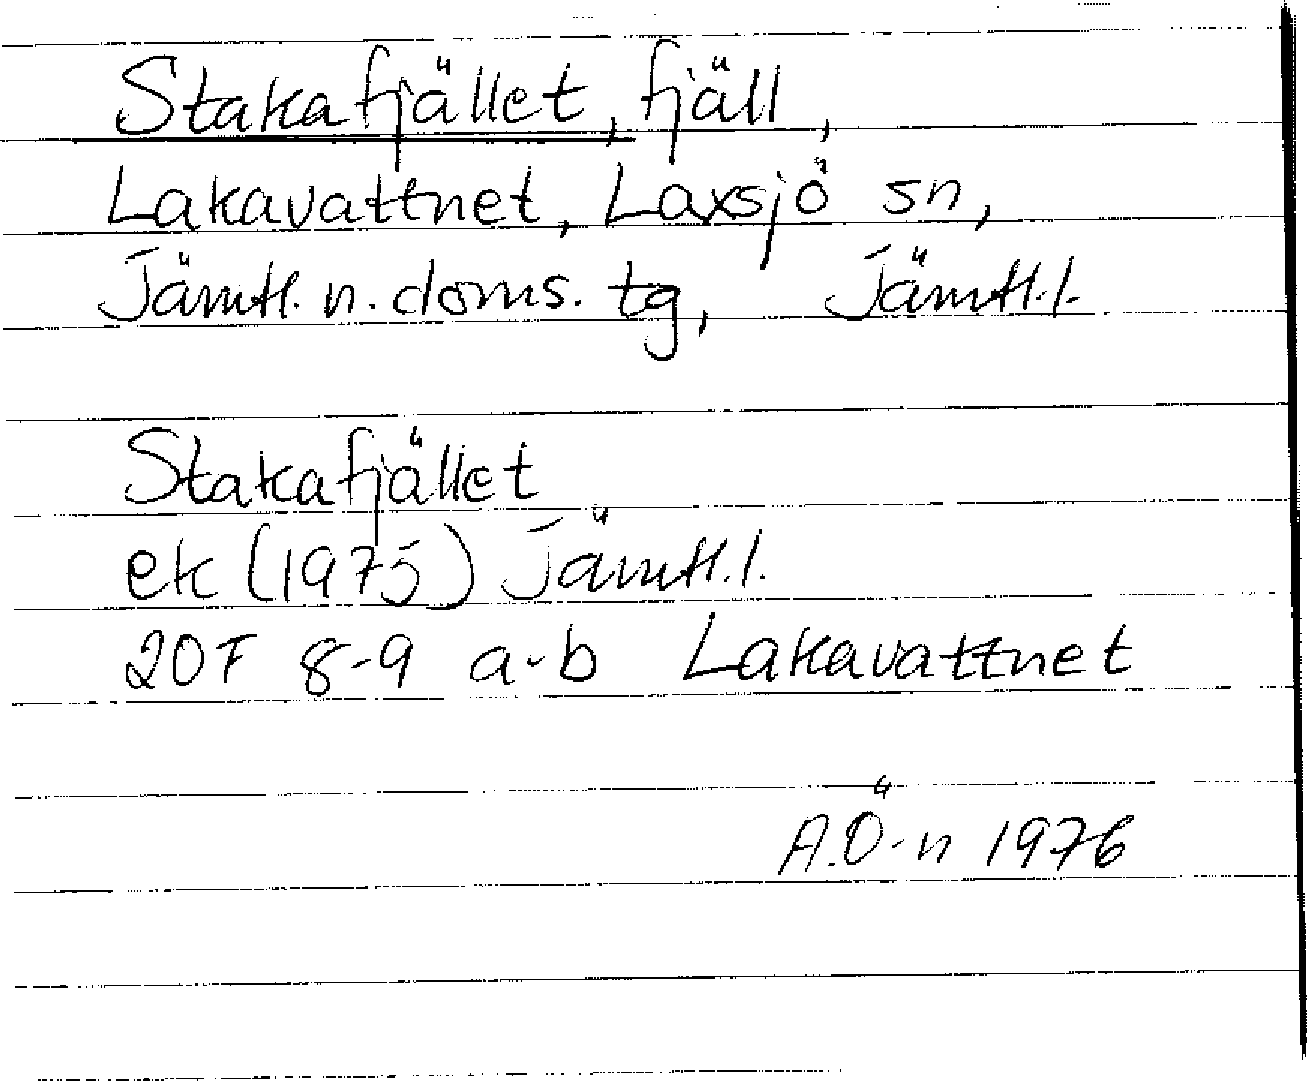 Stakafjället, fjäll,
Lakavattnet, Laxsjö sn,
Jämtl. n. doms. tg, Jämtl.l.
Stakafjället
ek (1975) Jämtl.l.
20F 8-9 a-b Lakavattnet
A.Ö-n 1976